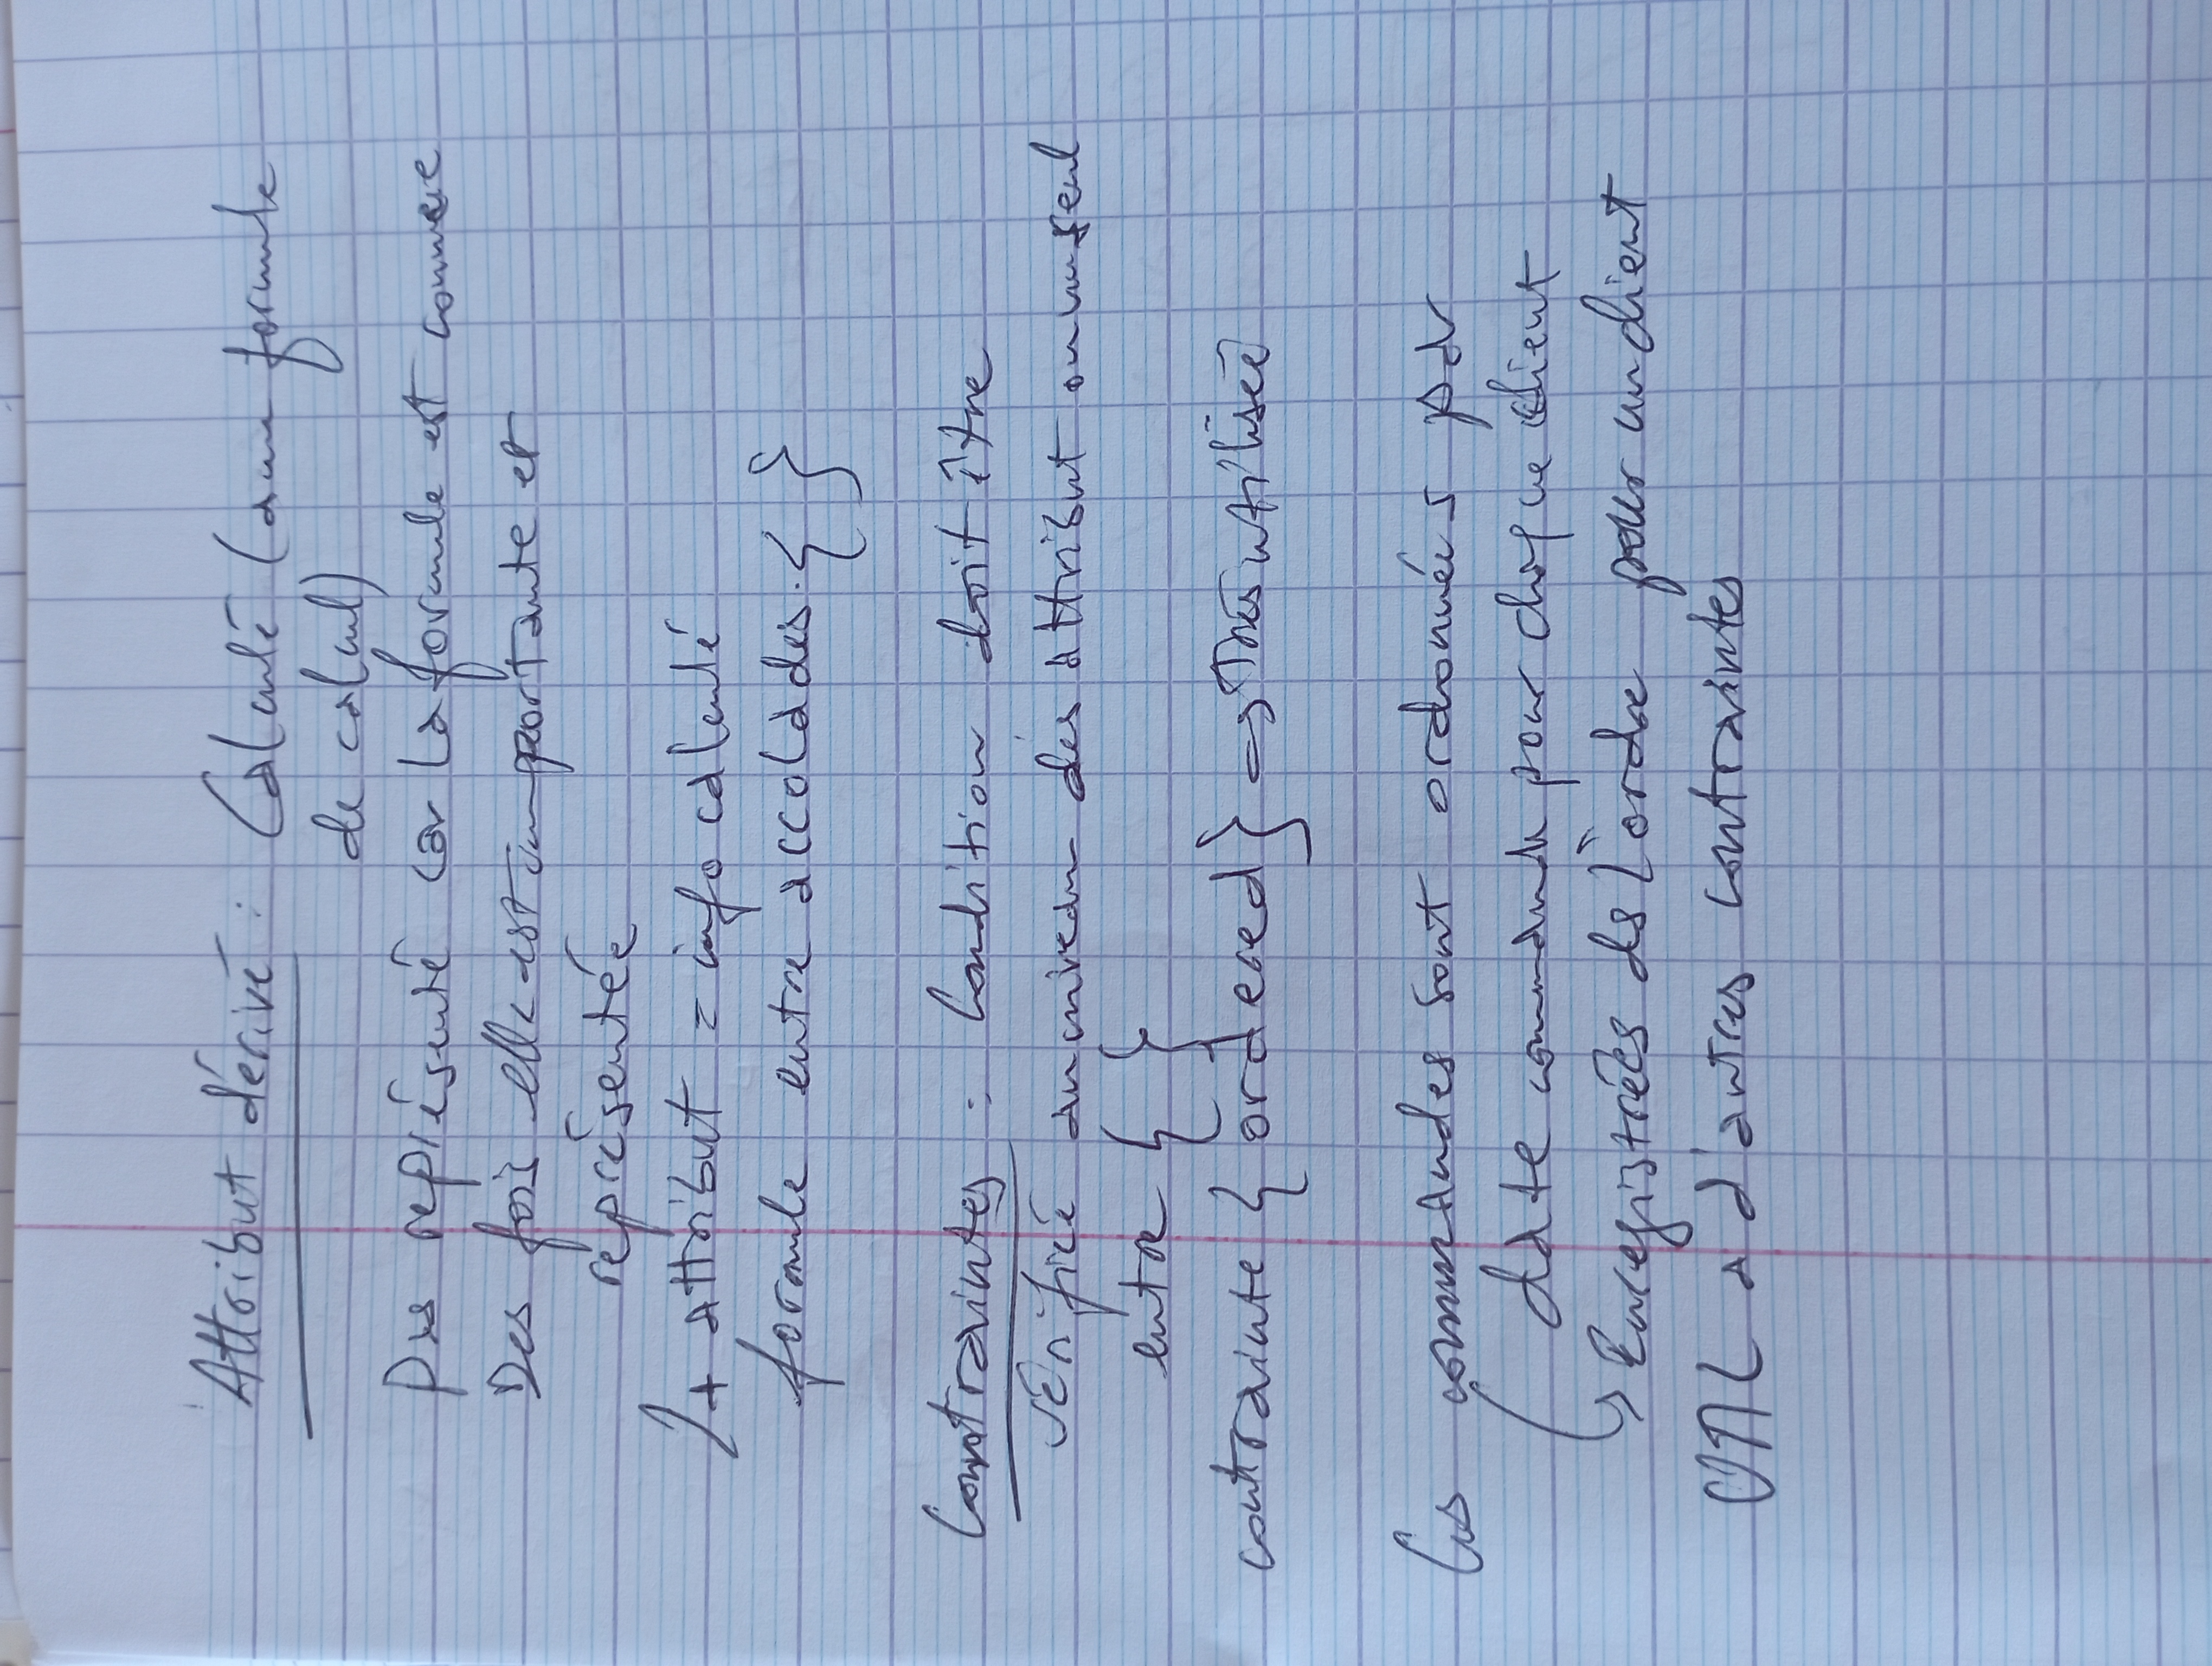 Attribut dérivé : Calculé (a une formule
de calcul)
Pas représenté car la formule est connue
Des fois elle est importante et
représentée
/ + attribut = info calculé
formule entre accolades { }
Contraintes : Condition doit être
vérifié au niveau des attribut ou un seul
entre { }
contrainte { ordered } => Très utilisée
Les commandes sont ordonnées par
date commande pour chaque client
↳ Enregistrées ds l'ordre pour un client
UML a d'autres contraintes